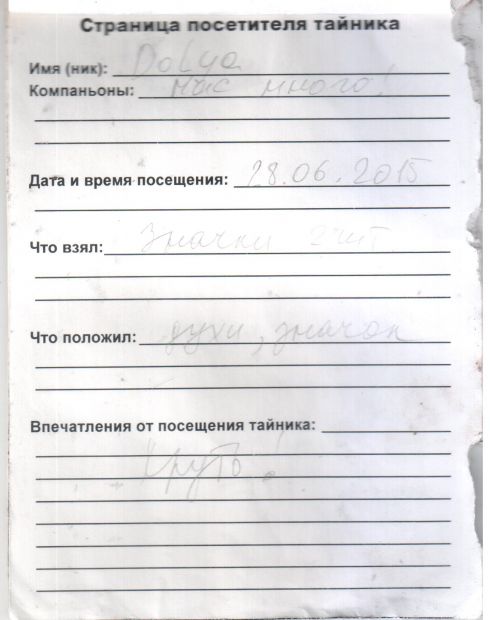 Страница посетителя тайника
Имя (ник): Dolya
Компаньоны: нас много!
Дата и время посещения: 28.06.2015
Что взял: Значки 2 шт
Что положил: духи, значок
Впечатления от посещения тайника:
Круто!